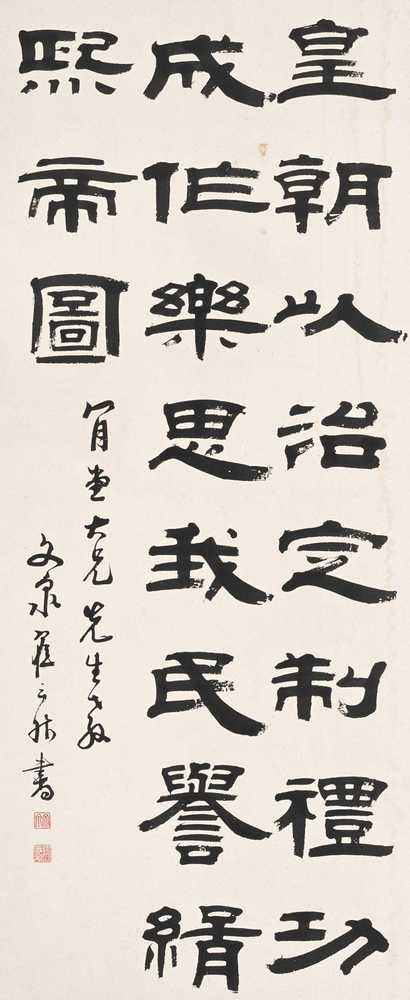 皇朝以治定制禮功
成作樂思我民譽緝
熙帝圖
堂大兄先生教
文泉書